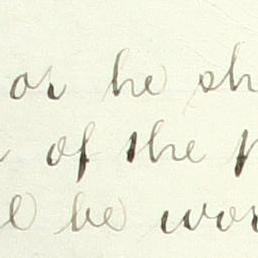 or he sh
of the
be wor